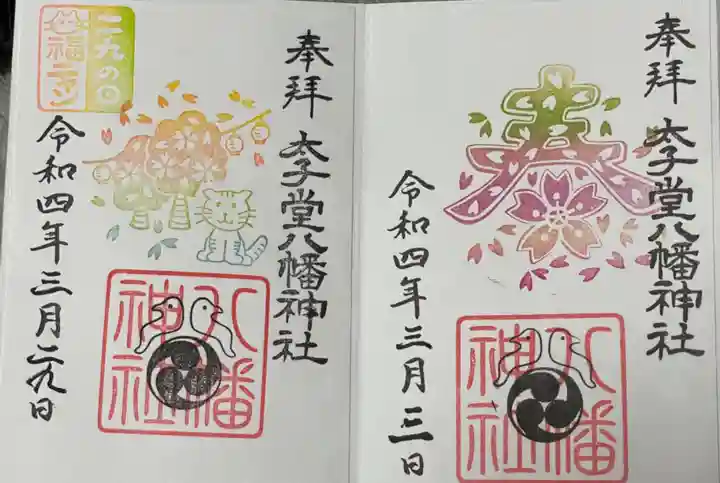 奉拝 太子堂八幡神社
春
令和四年三月三日
八幡
神社
奉拝 太子堂八幡神社
令和四年三月二九日
二九の日
福
八幡
神社